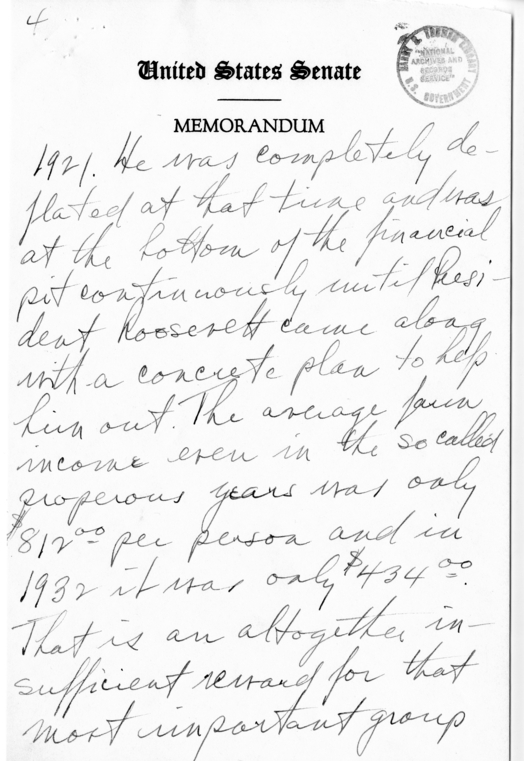 4
HARRY S. TRUMAN LIBRARY
"NATIONAL
ARCHIVES AND
RECORDS
SERVICE"
U.S. GOVERNMENT
United States Senate
MEMORANDUM
1921. He was completely de-
flated at that time and was
at the bottom of the financial
pit continuously until Presi-
dent Roosevelt came along
with a concrete plan to help
him out. The average farm
income even in the so called
properous years was only
$812.00 per person and in
1932 it was only $434.00.
That is an altogether in-
sufficient reward for that
most important group